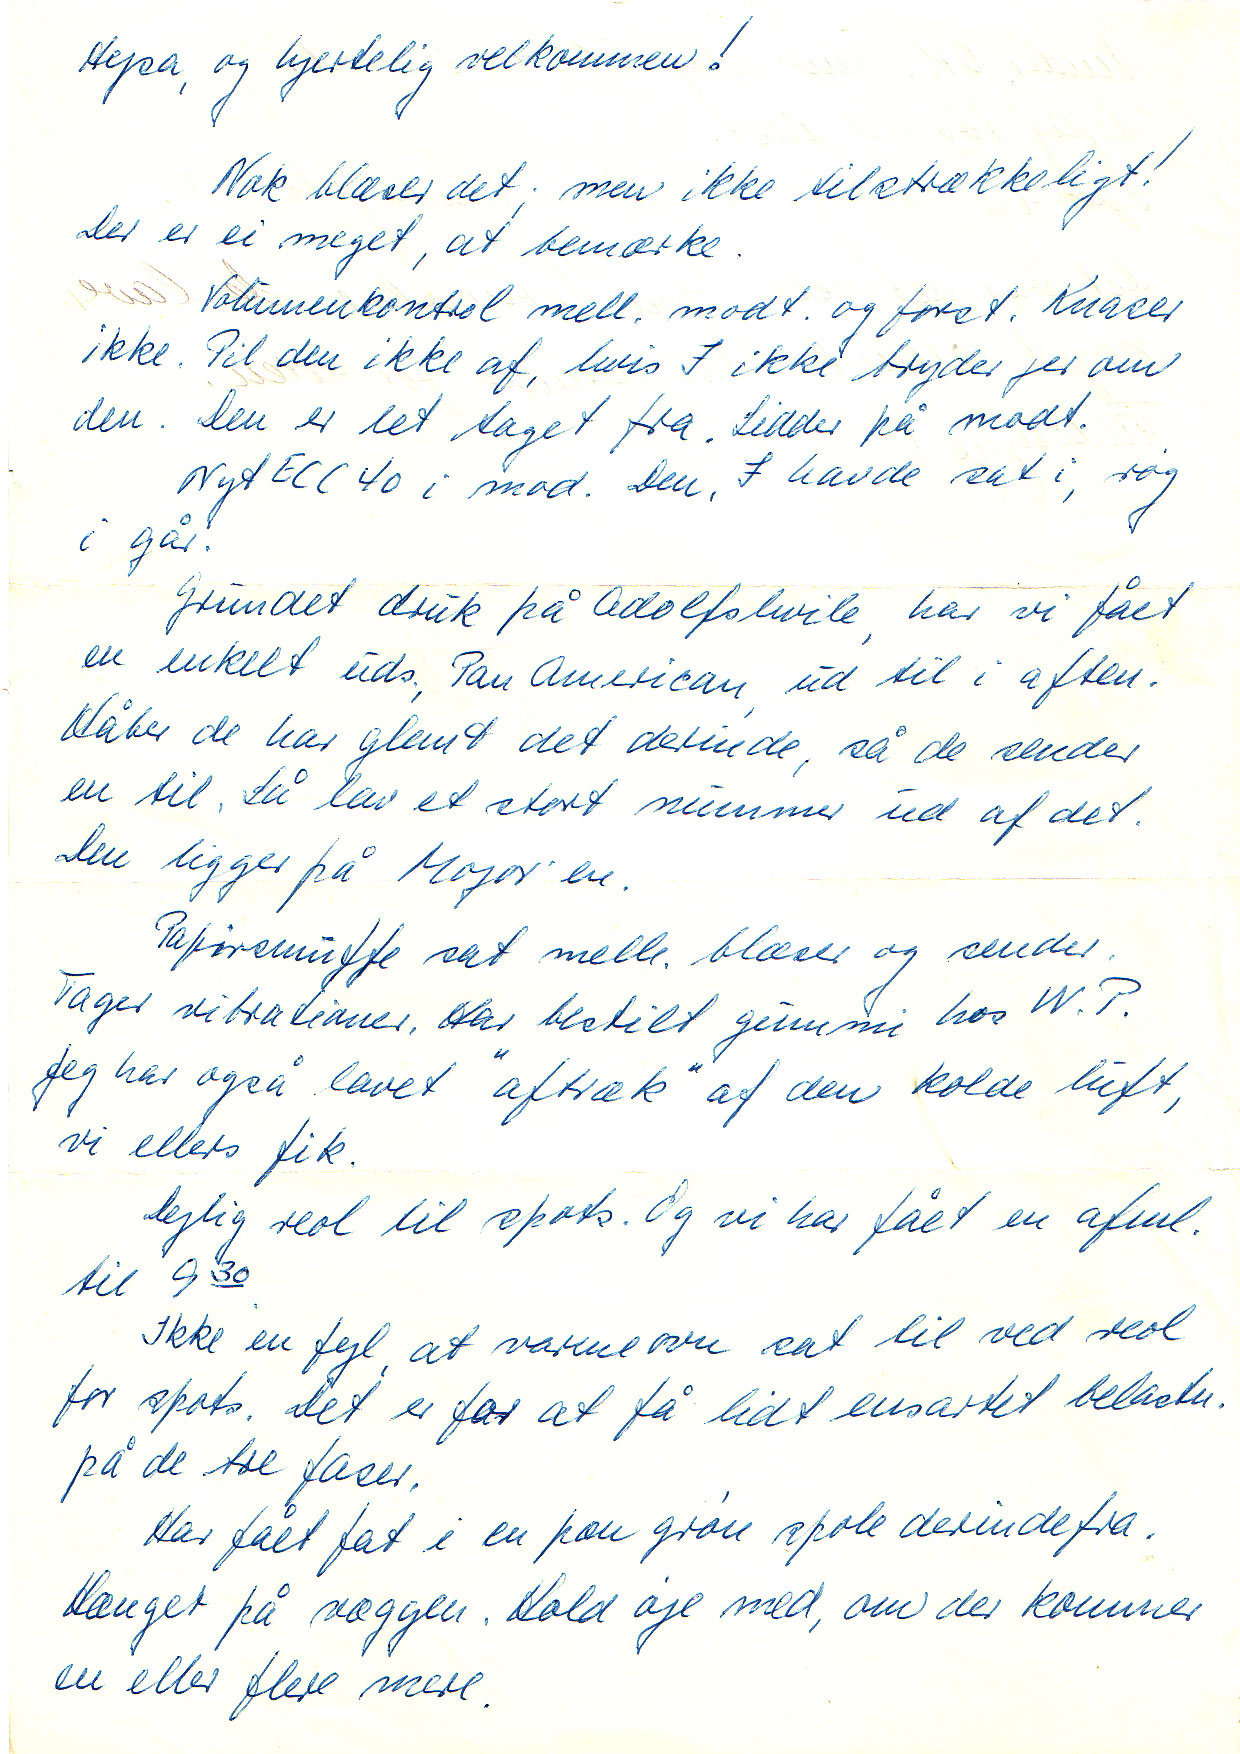 Hejsa, og hjertelig velkommen!
Nok blæser det, men ikke tilstrækkeligt!
Der er ej meget, at bemærke.
Volumenkontrol mell. modt. og forst. Knaser
ikke. Pil den ikke af, hvis I ikke bryder jer om
den. Den er let taget fra. Sidder på modt.
Nyt ECC 40 i mod. Den, I havde sat i, røg
i går.
Grundet druk på Adolfshvile, har vi fået
en enkelt uds., Pan American, ud til i aften.
Håber de har glemt det derinde, så de sender
en til. Så lav et stort nummer ud af det.
Den ligger på Major'en.
Papirsmuffe sat melle. blæser og sender.
Tager vibrationer. Har bestilt gummi hos W.P.
Jeg har også lavet "aftræk" af den kolde luft,
vi ellers fik.
Dejlig reol til spots. Og vi har fået en afml.
til 9 30
Ikke en fejl, at varmeovn sat til ved reol
for spots. Det er for at få lidt ensartet belastn.
på de tre faser.
Har fået fat i en pæn grøn spole derindefra.
Hænger på væggen. Hold øje med, om der kommer
en eller flere mere.